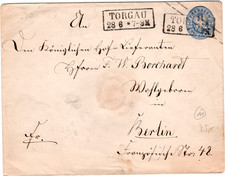 TORGAU
28 6 * 7-8N
TORGAU
28 6
An
den Königlichen Hof-Lieferanten
Herrn F. W. Borchardt
Wohlgeboren
in
Berlin.
Fr.
Französische Str. 42.